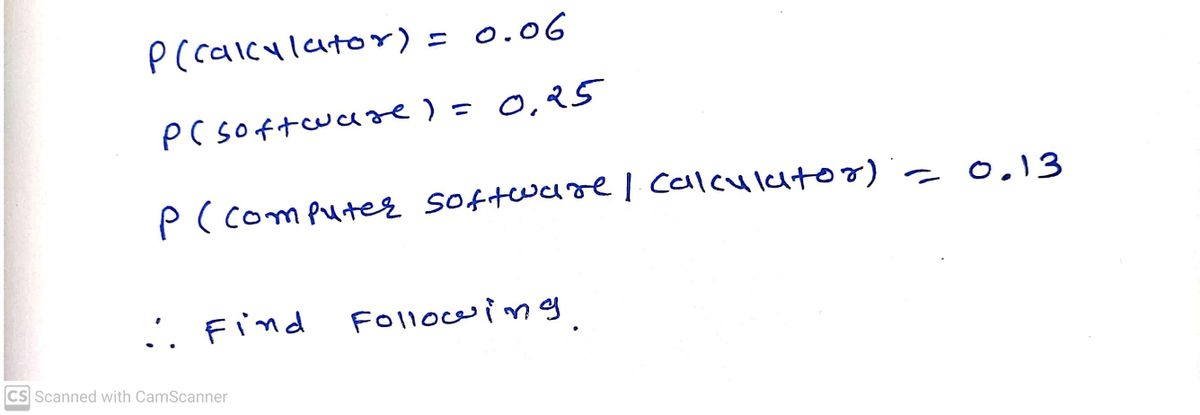 P(calculator) = 0.06
P(software) = 0.25
P(computer software | calculator) = 0.13
∴ Find Following.
CS Scanned with CamScanner